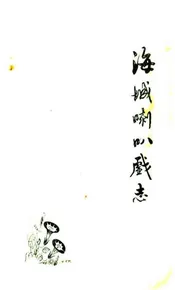 海城喇叭戏志